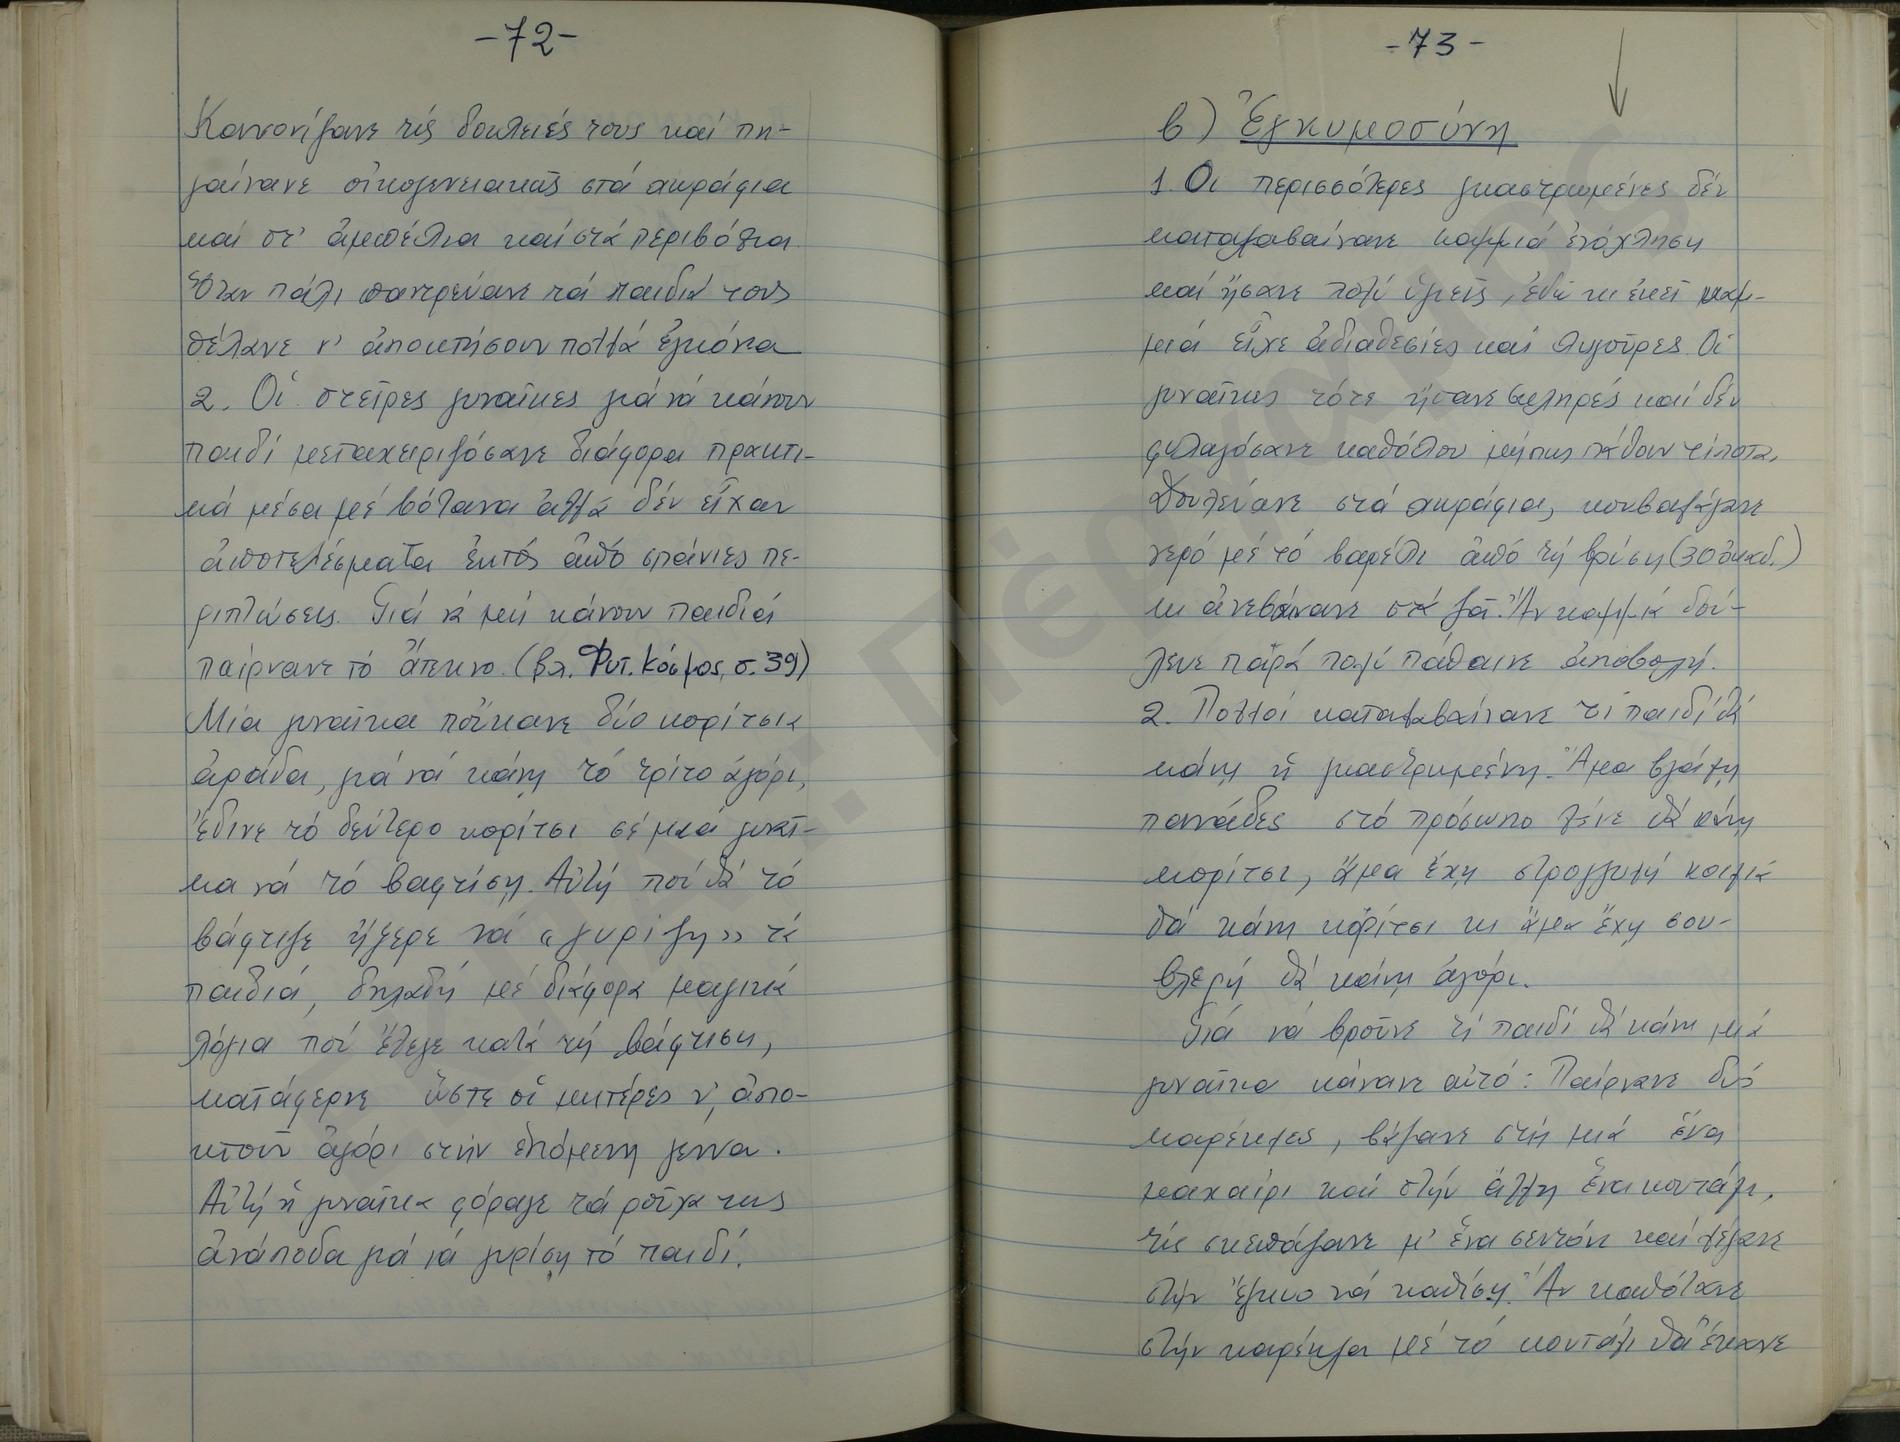 -72-
Κανονίζανε τίς δουλειές τους καί πη-
γαίνανε οἰκογενειακῶς στά χωράφια
καί στ' ἀμπέλια καί στά περιβόλια.
Ὅταν πάλι παντρεύανε τά παιδιά τους
θέλανε ν' ἀποκτήσουν πολλά ἐγγόνια
2. Οἱ στεῖρες γυναῖκες γιά νά κάνουν
παιδί μεταχειριζόσανε διάφορα πρακτι-
κά μέσα μέ βότανα ἀλλά δέν εἶχαν
ἀποτελέσματα ἐκτός ἀπό σπάνιες πε-
ριπτώσεις. Γιά νά μή κάνουν παιδιά
παίρνανε τό (βλ. Φυτ. Κόσμος, σ. 39)
Μία γυναίκα πὄκανε δύο κορίτσια
ἀράδα, γιά νά κάνη τό τρίτο ἀγόρι,
ἔδινε τό δεύτερο κορίτσι σέ μιά γυναῖ-
κα νά τό βαφτίση. Αὐτή πού θά τό
βάφτιζε ἤξερε νά «γυρίζη» τά
παιδιά, δηλαδή μέ διάφορα μαγικά
λόγια πού ἔλεγε κατά τή βάφτιση,
κατάφερνε ὥστε οἱ μητέρες ν' ἀπο-
κτοῦν ἀγόρι στήν ἑπόμενη γέννα.
Αὐτή ἡ γυναῖκα φόραγε τά ροῦχα της
ἀνάποδα γιά νά γυρίση τό παιδί.
-73-
β) Ἐγκυμοσύνη
1. Οι περισσότερες γκαστρωμένες δέν
καταλαβαίνανε καμμιά ἐνόχληση
καί ἤσανε πολύ ὑγιεῖς, ἐδῶ κι ἐκεῖ καμ-
μιά εἶχε ἀδιαθεσίες καί λιγοῦρες. Οἱ
γυναῖκες τότε ἤσανε σκληρές καί δέν
φυλαγόσανε καθόλου μήπως πάθουν τίποτα.
Δουλεύανε στά χωράφια, κουβαλάγανε
νερό μέ τό βαρέλι ἀπό τή βρύση (30 ὀκάδ.)
κι ἀνεβαίνανε στά Ἄν καμμιά δού-
λευε πάρα πολύ πάθαινε ἀποβολή.
2. Πολλοί καταλαβαίνανε τί παιδί θά
κάνη ἡ γκαστρωμένη. Ἅμα βγάζη
πανάδες στό πρόσωπο λένε θά κάνη
κορίτσι, ἅμα ἔχη στρογγυλή κοιλιά
θά κάνη κορίτσι κι ἅμα ἔχη σου-
βλερή θά κάνη ἀγόρι.
Γιά νά βροῦνε τί παιδί θά κάνη μιά
γυναῖκα κάνανε αὐτό: Παίρνανε δυό
καρέκλες, βάζανε στή μιά ἕνα
μαχαίρι καί στήν ἄλλη ἕνα κουτάλι,
τίς σκεπάζανε μ' ἕνα σεντόνι καί λέγανε
στήν ἔγκυο νά καθίση. Ἄν καθότανε
στήν καρέκλα μέ τό κουτάλι θά ἔκανε